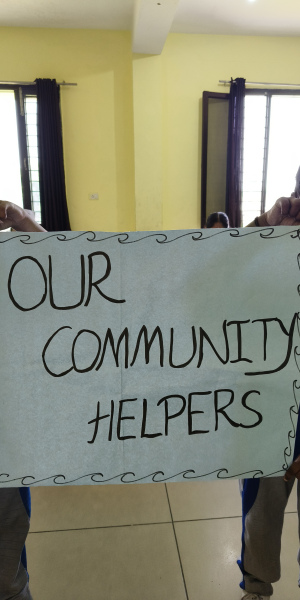 OUR
COMMUNITY
HELPERS